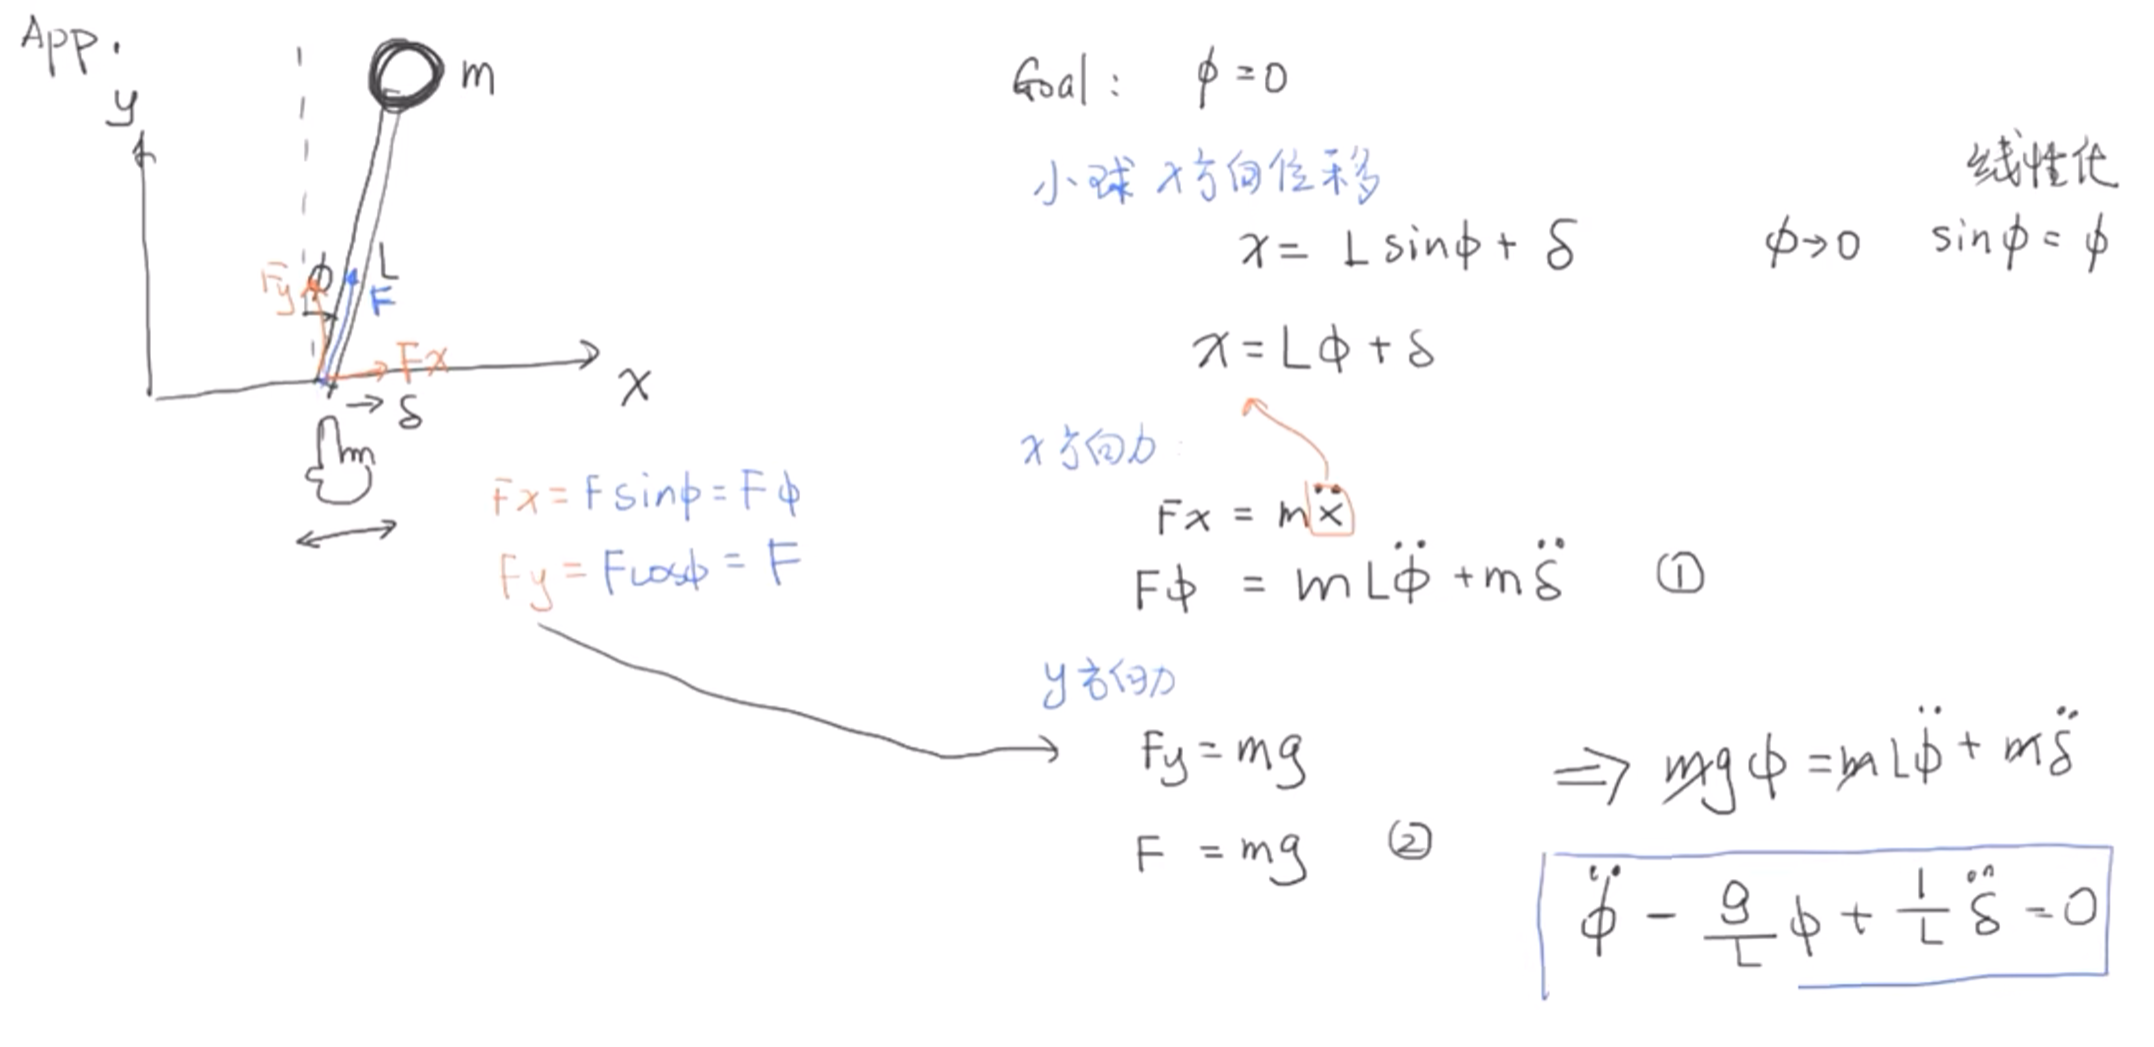 App.
y
m
ϕ
L
Fy
F
Fx
x
→ δ
Fx = Fsinϕ = Fϕ
Fy = Fcosϕ = F
Goal: ϕ = 0
小球 x方向位移
x = L sinϕ + δ
线性化
ϕ→0 sinϕ = ϕ
x = Lϕ + δ
x方向力:
Fx = mẍ
Fϕ = mLϕ̈ + mδ̈ ①
y方向力
Fy = mg
F = mg ②
⇒ mgϕ = mLϕ̈ + mδ̈
ϕ̈ - g/L ϕ + 1/L δ̈ = 0